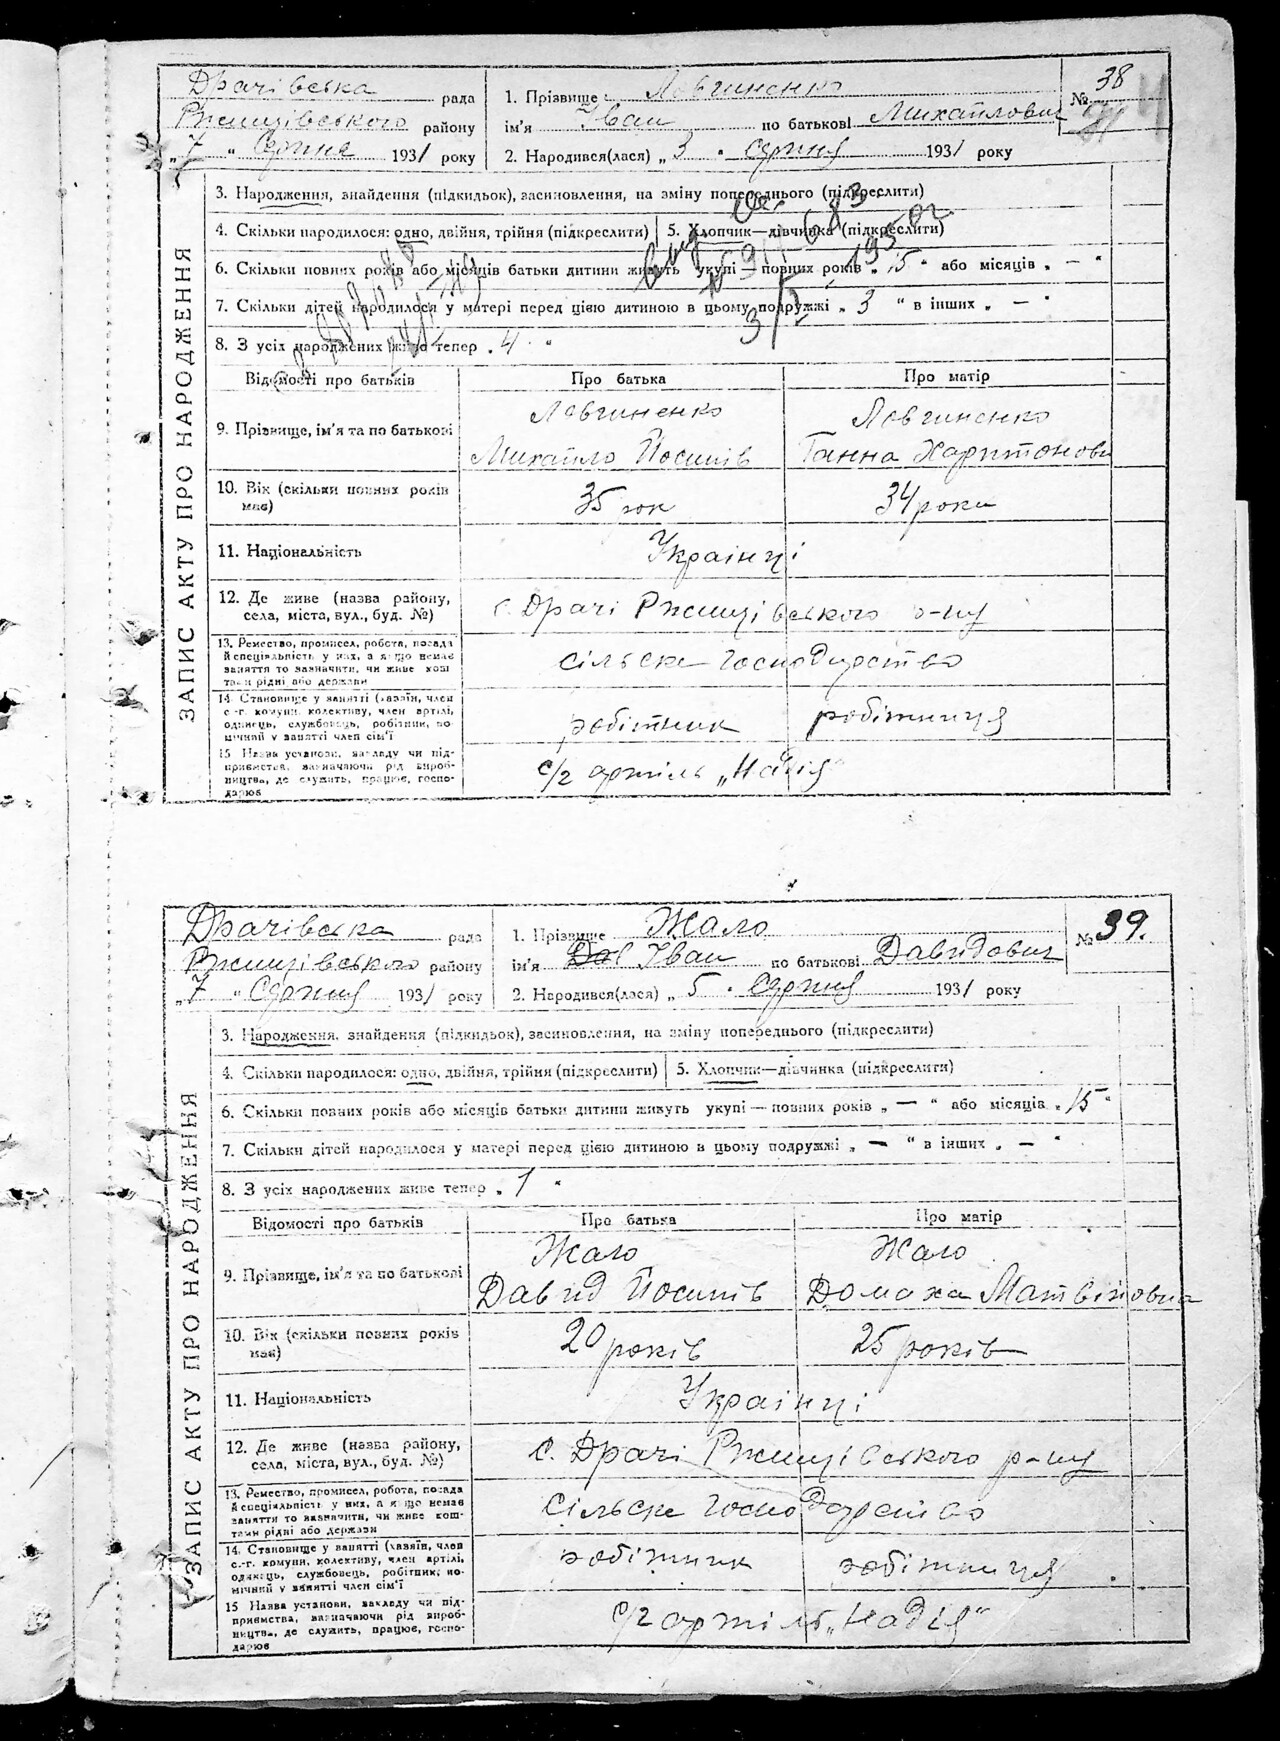 Драчівська рада
Ржищівського району
„7 “ Серпня 1931 року
1. Прізвище Логвиненко
ім'я Іван по батькові Михайлович
2. Народився(лася) „ 3 “ серпня 1931 року
№ 38
ЗАПИС АКТУ ПРО НАРОДЖЕННЯ
3. Народження, знайдення (підкидьок), засиновлення, на зміну попереднього (підкреслити)
4. Скільки народилося: одно, двійня, трійня (підкреслити) 5. Хлопчик—дівчинка (підкреслити)
6. Скільки повних років або місяців батьки дитини живуть укупі — повних років „ 15 “ або місяців „ — “
7. Скільки дітей народилося у матері перед цією дитиною в цьому подружжі „ 3 “ в інших „ — “
8. З усіх народжених живе тепер „ 4 “
Відомості про батьків Про батька Про матір
9. Прізвище, ім'я та по батькові
Михайло Йосипів
Ганна Харитоновн
10. Вік (скільки повних років має)
35 рок 34 роки
11. Національність Українці
12. Де живе (назва району, села, міста, вул., буд. №)
с. Драчі Ржищівського р-ну
13. Ремество, промисел, робота, посада
й спеціяльність у них, а якщо немає
заняття то зазначити, чи живе кош
тами рідні або держави
сільське господарство
14. Становище у занятті (хазяїн, член
с.-г. комуни, колективу, член артілі,
одинець, службовець, робітник, по-
мічний у занятті член сім'ї
робітник робітниця
15 Назва установи, закладу чи під-
приємства, зазначаючи рід вироб-
ництва, де служить, працює, госпо-
дарює
с/г артіль „Надія“
Драчівська рада
Ржищівського району
„7 “ Серпня 1931 року
1. Прізвище Жало
ім'я Дав Іван по батькові Давидович
2. Народився(лася) „ 5 “ Серпня 1931 року
№ 39.
ЗАПИС АКТУ ПРО НАРОДЖЕННЯ
3. Народження, знайдення (підкидьок), засиновлення, на зміну попереднього (підкреслити)
4. Скільки народилося: одно, двійня, трійня (підкреслити) 5. Хлопчик—дівчинка (підкреслити)
6. Скільки повних років або місяців батьки дитини живуть укупі — повних років „ — “ або місяців „ 15 “
7. Скільки дітей народилося у матері перед цією дитиною в цьому подружжі „ — “ в інших „ — “
8. З усіх народжених живе тепер „ 1 “
Відомості про батьків Про батька Про матір
9. Прізвище, ім'я та по батькові
Жало Жало
Давид Йосипів Домаха Матвійовна
10. Вік (скільки повних років має)
20 років 25 років
11. Національність Українці
12. Де живе (назва району, села, міста, вул., буд. №)
с. Драчі Ржищівського р-ну
13. Ремество, промисел, робота, посада
й спеціяльність у них, а якщо немає
заняття то зазначити, чи живе кош-
тами рідні або держави
сільське господарство
14. Становище у занятті (хазяїн, член
с.-г. комуни, колективу, член артілі,
одинець, службовець, робітник, по-
мічний у занятті член сім'ї
робітник робітниця
15 Назва установи, закладу чи під-
приємства, зазначаючи рід вироб-
ництва, де служить, працює, госпо-
дарює
с/г артіль „Надія“